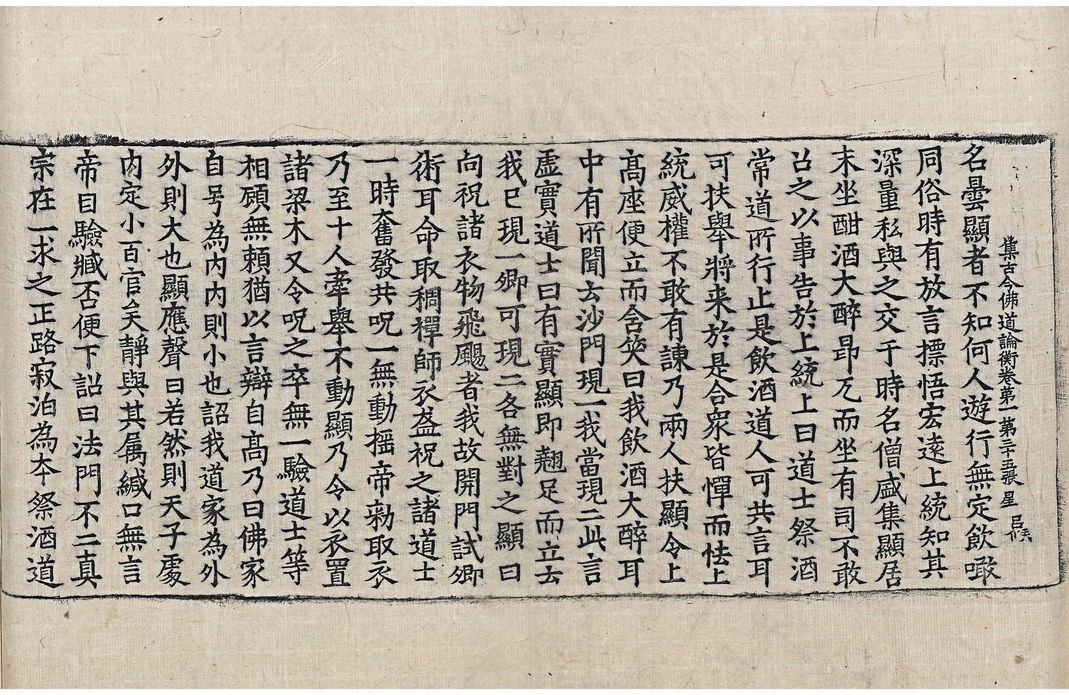 集古今佛道論衡卷第一第三十五張 星
名曇顯者不知何人遊行無定飲噉
同俗時有放言摽悟宏遠上統知其
深量私與之交于時名僧盛集顯居
末坐酣酒大醉昂兀而坐有司不敢
召之以事告於上統上曰道士祭酒
常道所行止是飲酒道人可共言耳
可扶舉將来於是合衆皆憚而怯上
統威權不敢有諫乃兩人扶顯令上
髙座便立而含笑曰我飲酒大醉耳
中有所聞云沙門現一我當現二此言
虛實道士曰有實顯即翹足而立云
我已現一卿可現二各無對之顯曰
向祝諸衣物飛颺者我故開門試卿
術耳命取稠禪師衣盋祝之諸道士
一時奮發共呪一無動摇帝勑取衣
乃至十人牽舉不動顯乃令以衣置
諸梁木又令呪之卒無一驗道士等
相顧無賴猶以言辯自髙乃曰佛家
自号為内内則小也詔我道家為外
外則大也顯應聲曰若然則天子處
内定小百官矣靜與其属緘口無言
帝目驗臧否便下詔曰法門不二真
宗在一求之正路寂泊為夲祭酒道